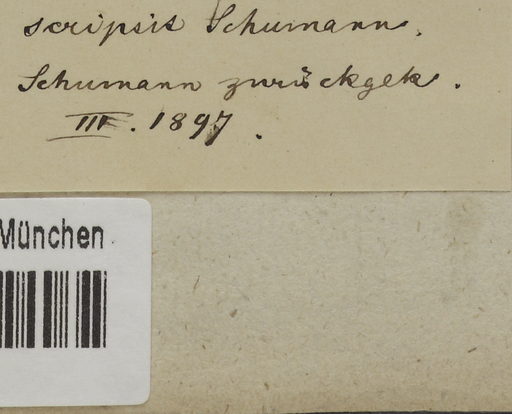 scripsit Schumann.
Schumann zurückgek.
III. 1897.
München